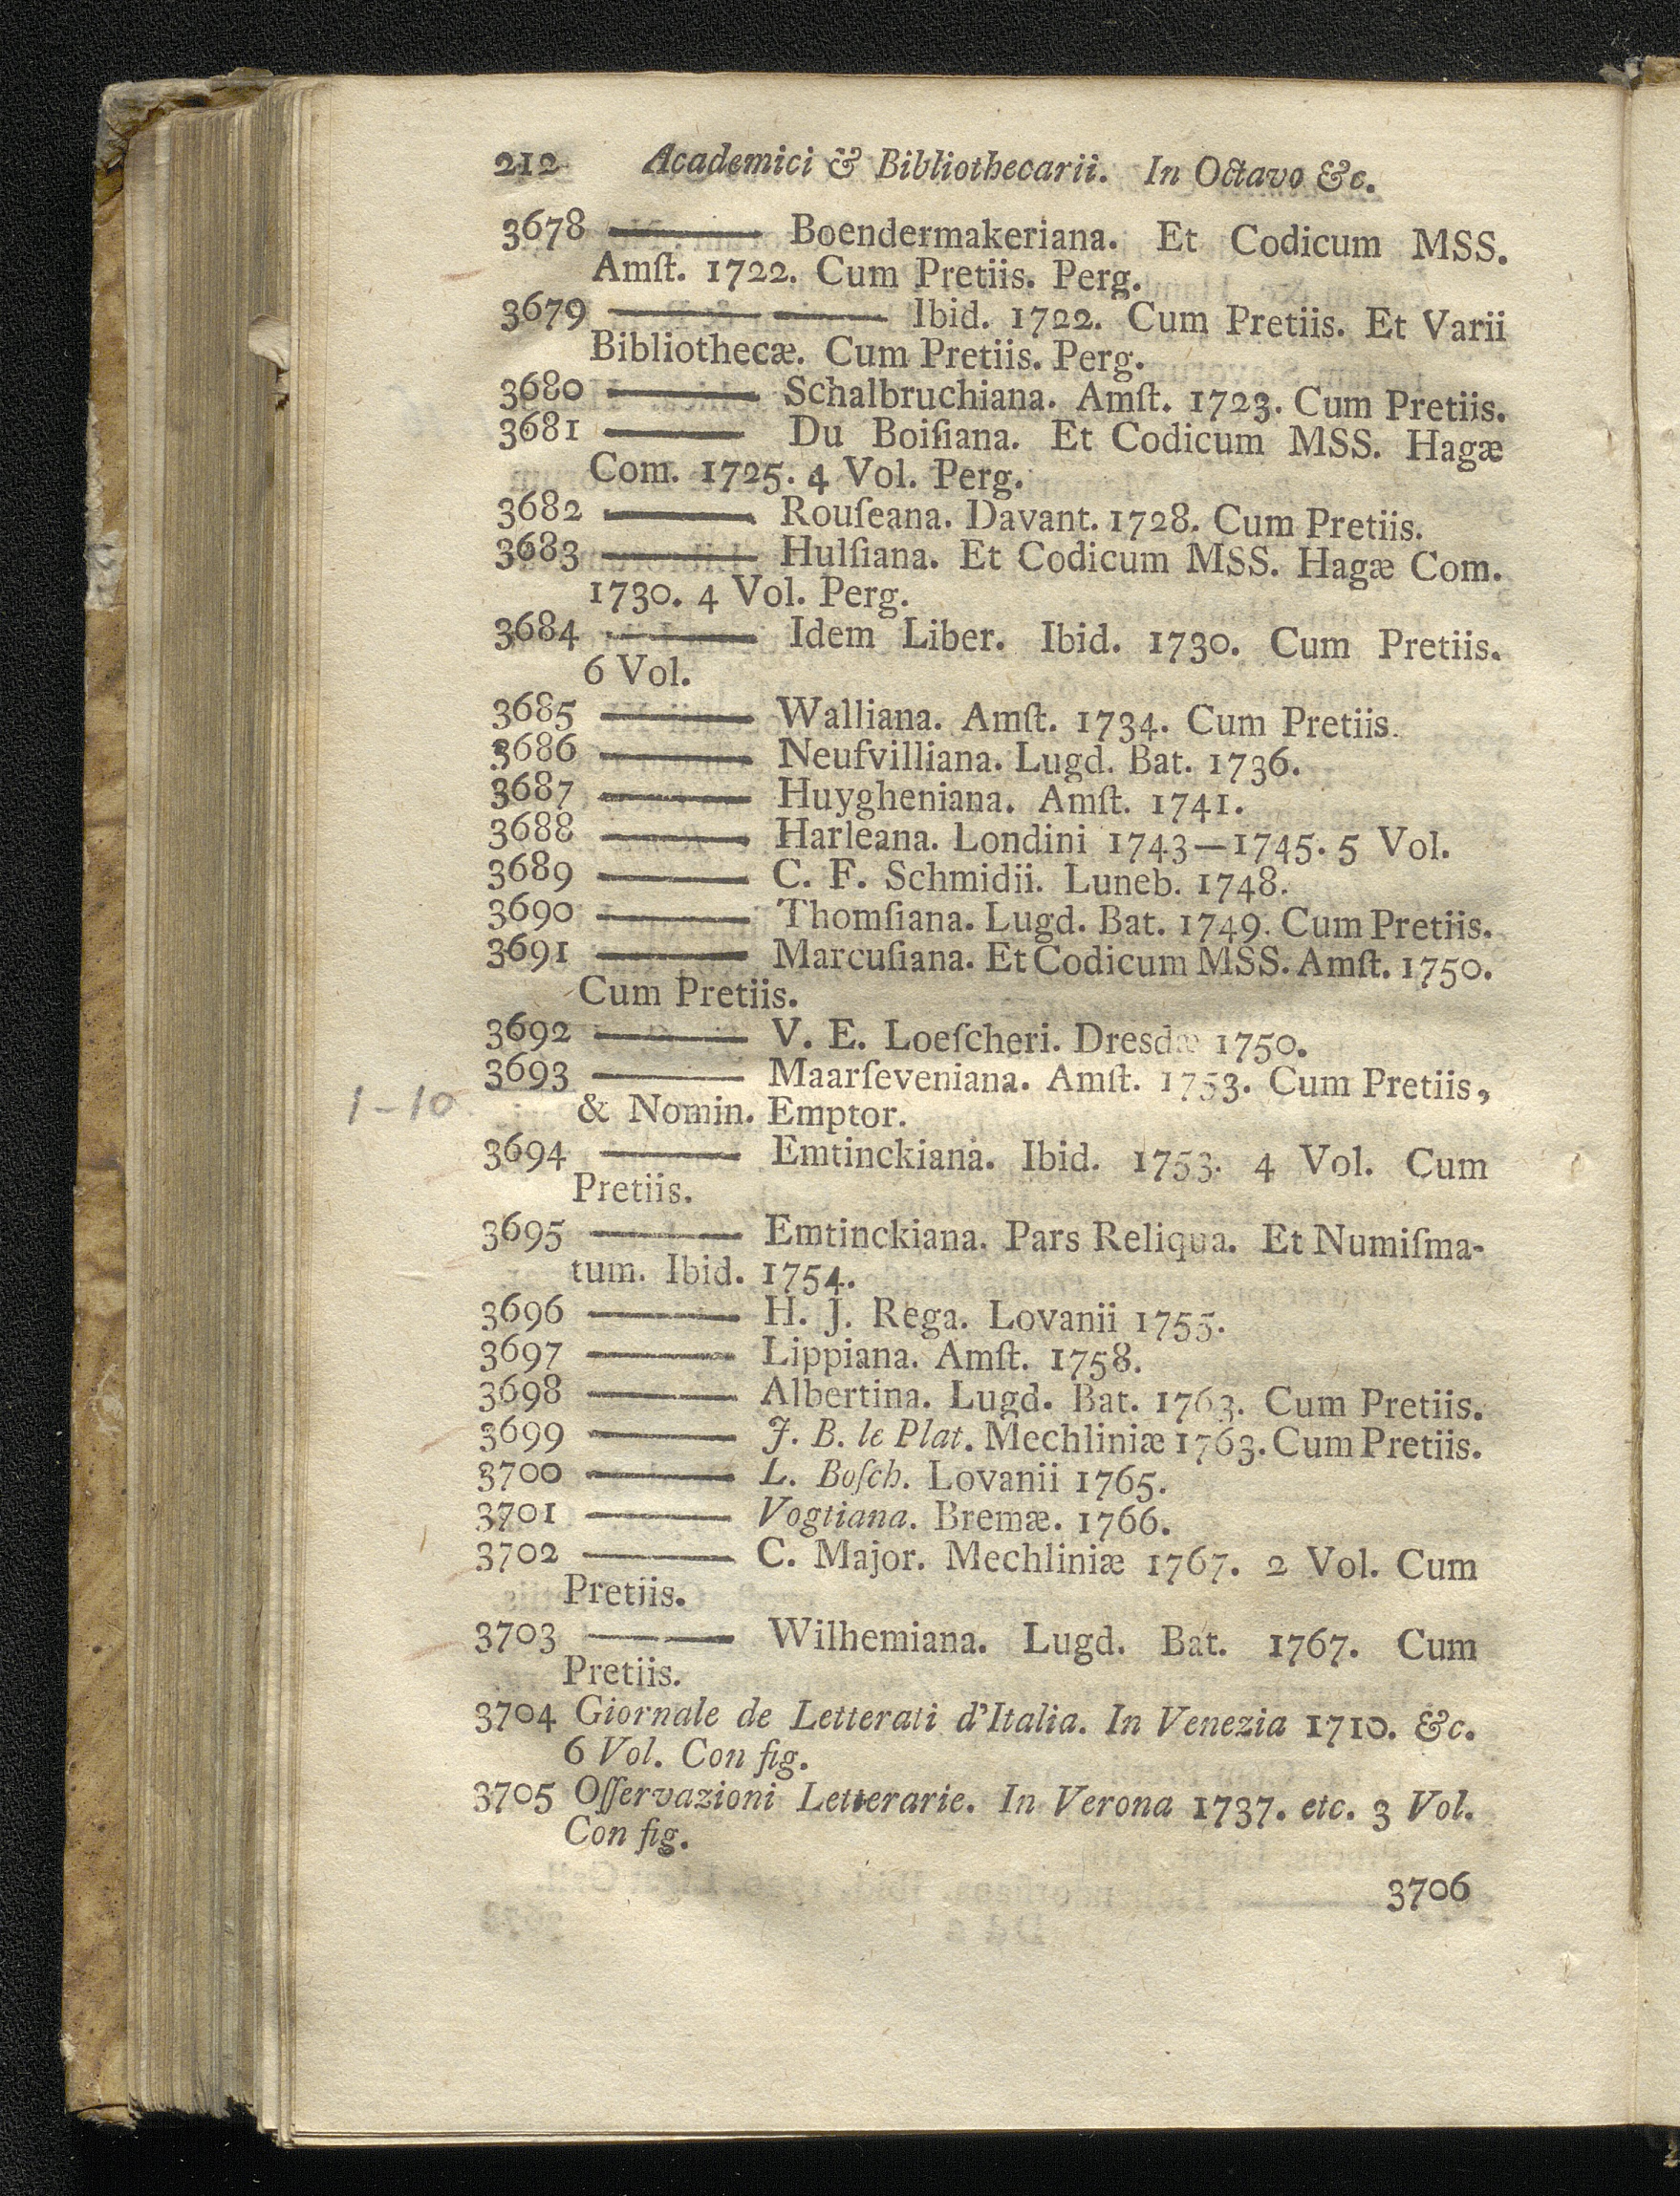 212 Academici & Bibliothecarii. In Octavo &c.
3678 ——— Boendermakeriana. Et Codicum MSS.
Amſt. 1722. Cum Pretiis. Perg.
3679 ——— ——— Ibid. 1722. Cum Pretiis. Et Varii
Bibliothecæ. Cum Pretiis. Perg.
3680 ——— Schalbruchiana. Amſt. 1723. Cum Pretiis.
3681 ——— Du Boiſiana. Et Codicum MSS. Hagæ
Com. 1725. 4 Vol. Perg.
3682 ——— Rouſeana. Davant. 1728. Cum Pretiis.
3683 ——— Hulſiana. Et Codicum MSS. Hagæ Com.
1730. 4 Vol. Perg.
3684 ——— Idem Liber. Ibid. 1730. Cum Pretiis.
6 Vol.
3685 ——— Walliana. Amſt. 1734. Cum Pretiis.
3686 ——— Neufvilliana. Lugd. Bat. 1736.
3687 ——— Huygheniana. Amſt. 1741.
3688 ——— Harleana. Londini 1743—1745. 5 Vol.
3689 ——— C. F. Schmidii. Luneb. 1748.
3690 ——— Thomſiana. Lugd. Bat. 1749. Cum Pretiis.
3691 ——— Marcuſiana. Et Codicum MSS. Amſt. 1750.
Cum Pretiis.
3692 ——— V. E. Loeſcheri. Dresdæ 1750.
3693 ——— Maarſeveniana. Amſt. 1753. Cum Pretiis,
1-10 & Nomin. Emptor.
3694 ——— Emtinckiana. Ibid. 1753. 4 Vol. Cum
Pretiis.
3695 ——— Emtinckiana. Pars Reliqua. Et Numiſma-
tum. Ibid. 1754.
3696 ——— H. J. Rega. Lovanii 1755.
3697 ——— Lippiana. Amſt. 1758.
3698 ——— Albertina. Lugd. Bat. 1763. Cum Pretiis.
3699 ——— J. B. le Plat. Mechliniæ 1763. Cum Pretiis.
3700 ——— L. Boſch. Lovanii 1765.
3701 ——— Vogtiana. Bremæ. 1766.
3702 ——— C. Major. Mechliniæ 1767. 2 Vol. Cum
Pretiis.
3703 ——— Wilhemiana. Lugd. Bat. 1767. Cum
Pretiis.
3704 Giornale de Letterati d'Italia. In Venezia 1710. &c.
6 Vol. Con fig.
3705 Oſſervazioni Letterarie. In Verona 1737. etc. 3 Vol.
Con fig.
3706